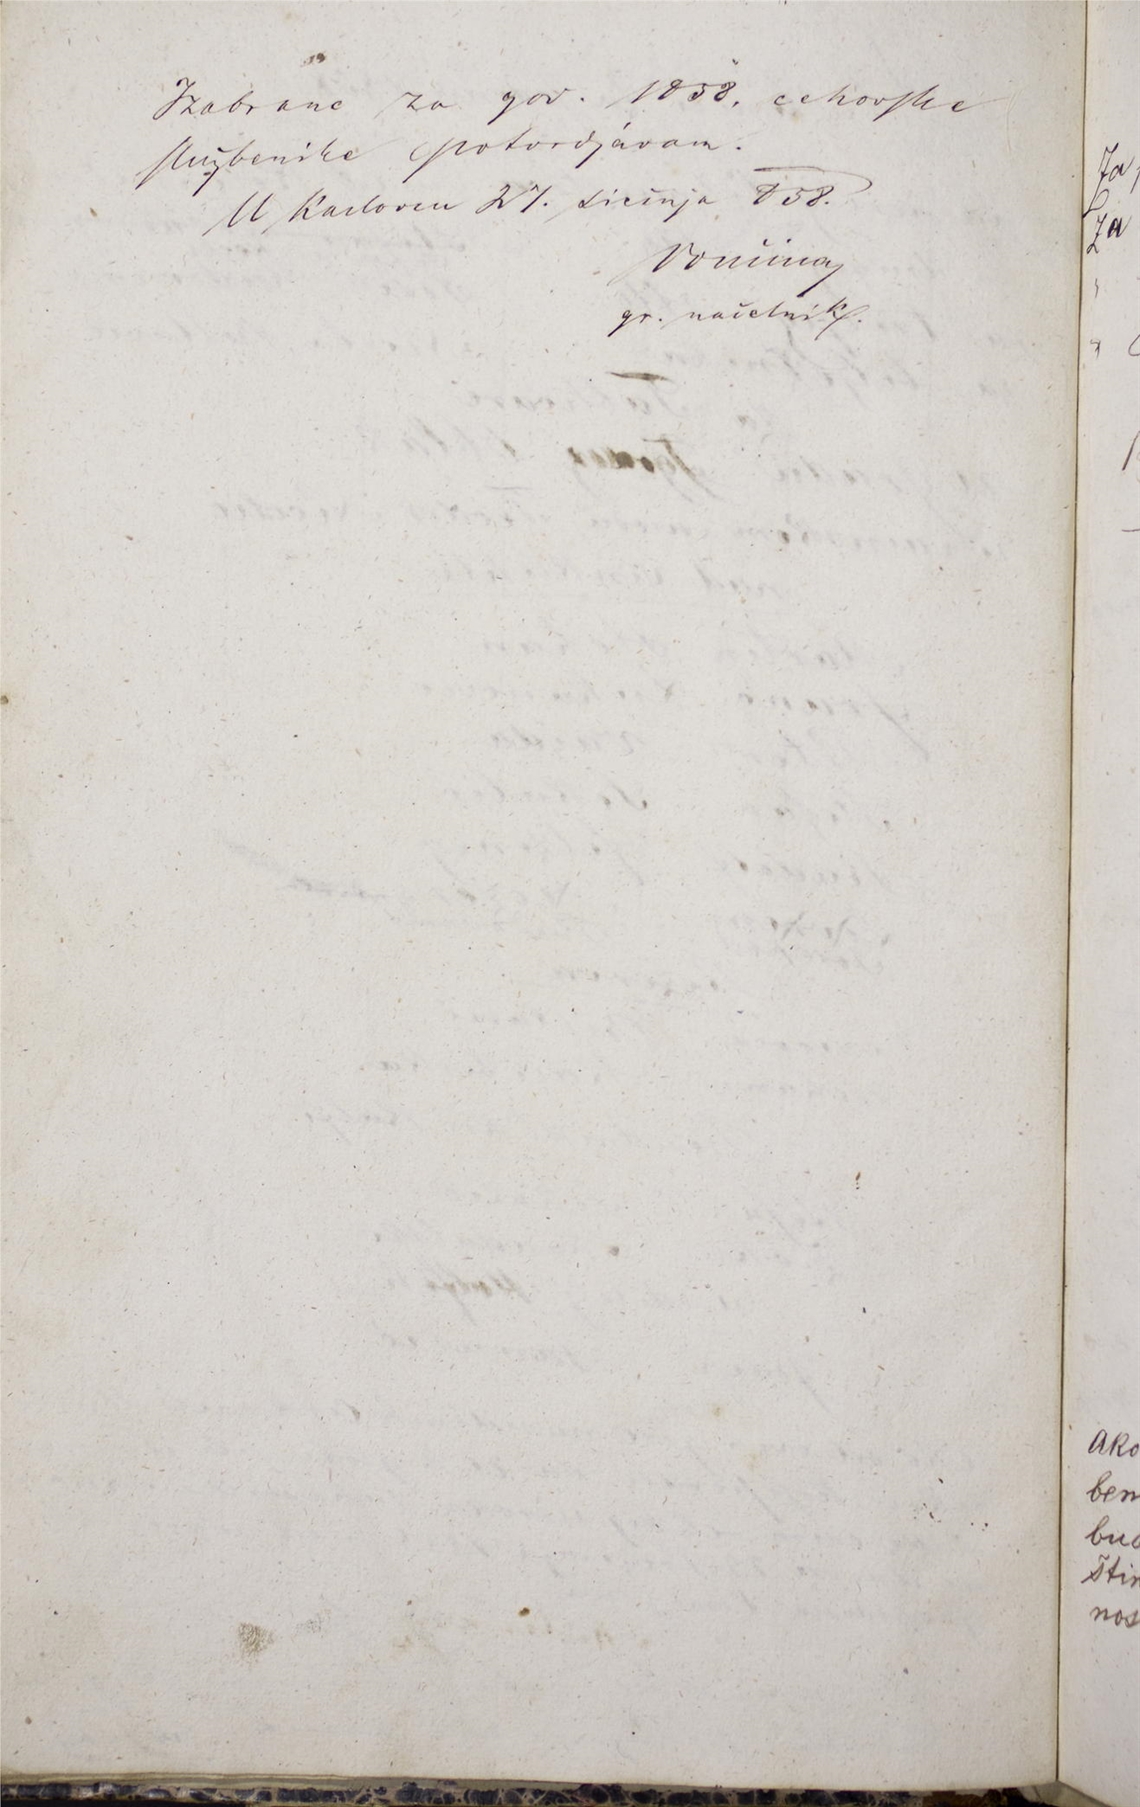 Izabrane za god. 1858. cehovske
službenike potvrdjávam.
U Karlovcu 27. Sičnja 858.
Vončina
gr. načelnik.
Za
Za
ako
ben
bud
štin
nos